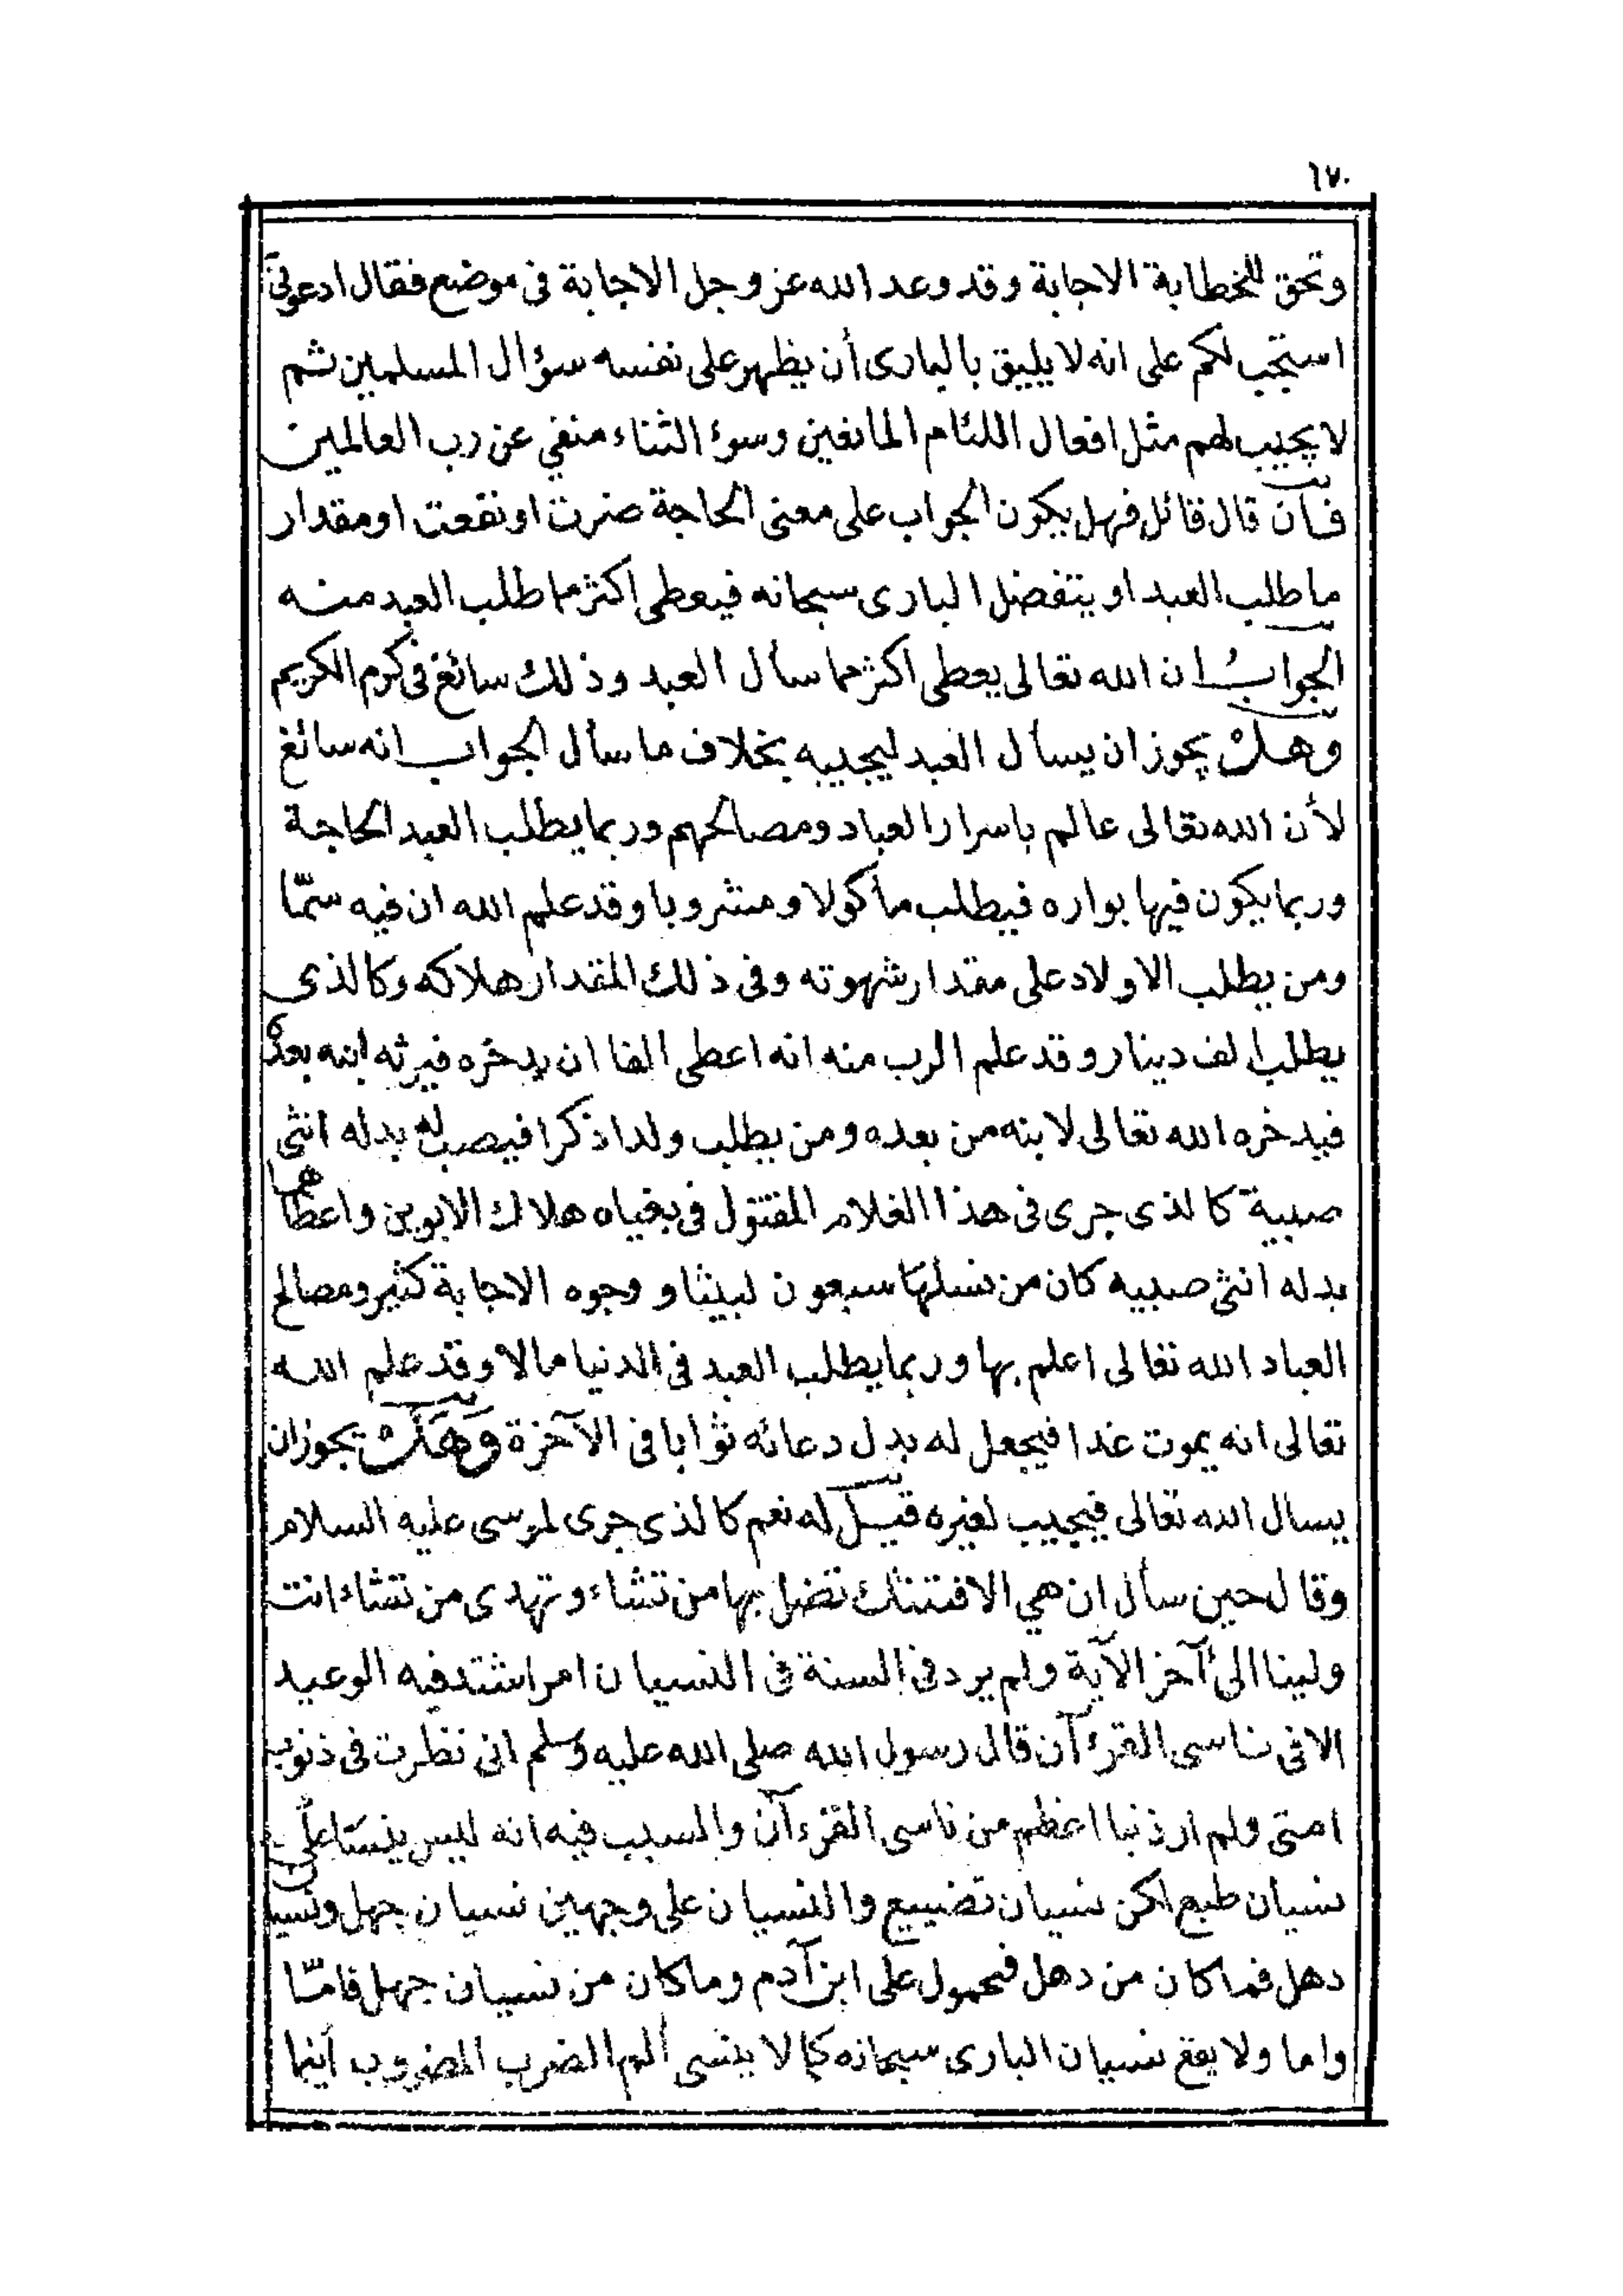 ١٧٠
وتحق للخطابة الاجابة وقد وعد الله عز وجل الاجابة فى موضع فقال ادعونى
استجب لكم على انه لا يليق بالبارى أن يظهر على نفسه سؤال المسلمين ثم
لا يجيب لهم مثل افعال اللئام المانعين وسوء الثناء منفي عن رب العالمين
فان قال قائل فهل يكون الجواب على معنى الحاجة ضرت او نفعت او مقدار
ما طلب العبد او يتفضل البارى سبحانه فيعطى اكثر مما طلب العبد منه
الجواب ان الله تعالى يعطى اكثر مما سأل العبد وذلك سائغ فى كرم الكريم
وهل يجوز ان يسأل العبد ليجيبه بخلاف ما سأل الجواب انه سائغ
لأن الله تعالى عالم باسرار العباد ومصالحهم وربما يطلب العبد الحاجة
وربما يكون فيها بواره فيطلب مأكولا ومشروبا وقد علم الله ان فيه سمّا
ومن يطلب الاولاد على مقدار شهوته وفى ذلك المقدار هلاكه وكالذى
يطلب الف دينار وقد علم الرب منه انه اعطى الفا ان يدخره فيرثه ابنه بعده
فيدخره الله تعالى لابنه من بعده ومن يطلب ولدا ذكرا فيصب له بدله انثى
صبية كالذى جرى فى هذا الغلام المقتول فى بغياه هلاك الابوين واعطاهما
بدله انثى صبيه كان من نسلها سبعون نبيئا و وجوه الاجابة كثير ومصالح
العباد الله تعالى اعلم بها وربما يطلب العبد فى الدنيا مالا وقد علم الله
تعالى انه يموت غدا فيجعل له بدل دعائه ثوابا فى الآخرة وهل يجوز ان
يسال الله تعالى فيجيب لغيره قيل له نعم كالذى جرى لموسى عليه السلام
وقال حين سأل ان هي الا فتنتك تضل بها من تشاء وتهدى من تشاء انت
ولينا الى آخر الآية ولم يرد فى السنة فى النسيان امر اشتد فيه الوعيد
الا فى ناسى القرءآن قال رسول الله صلى الله عليه وسلم انى نظرت فى ذنوب
امتى ولم ار ذنبا اعظم من ناسى القرءآن والسبب فيه انه ليس ينسا على
نسيان طبع لكن نسيان تضييع والنسيان على وجهين نسيان جهل ونسيان
دهل فما كان من دهل فمحمول على ابن آدم وما كان من نسيان جهل فامّا
واما ولا يقع نسيان البارى سبحانه كما لا ينسى ألم الضرب المضروب أينما